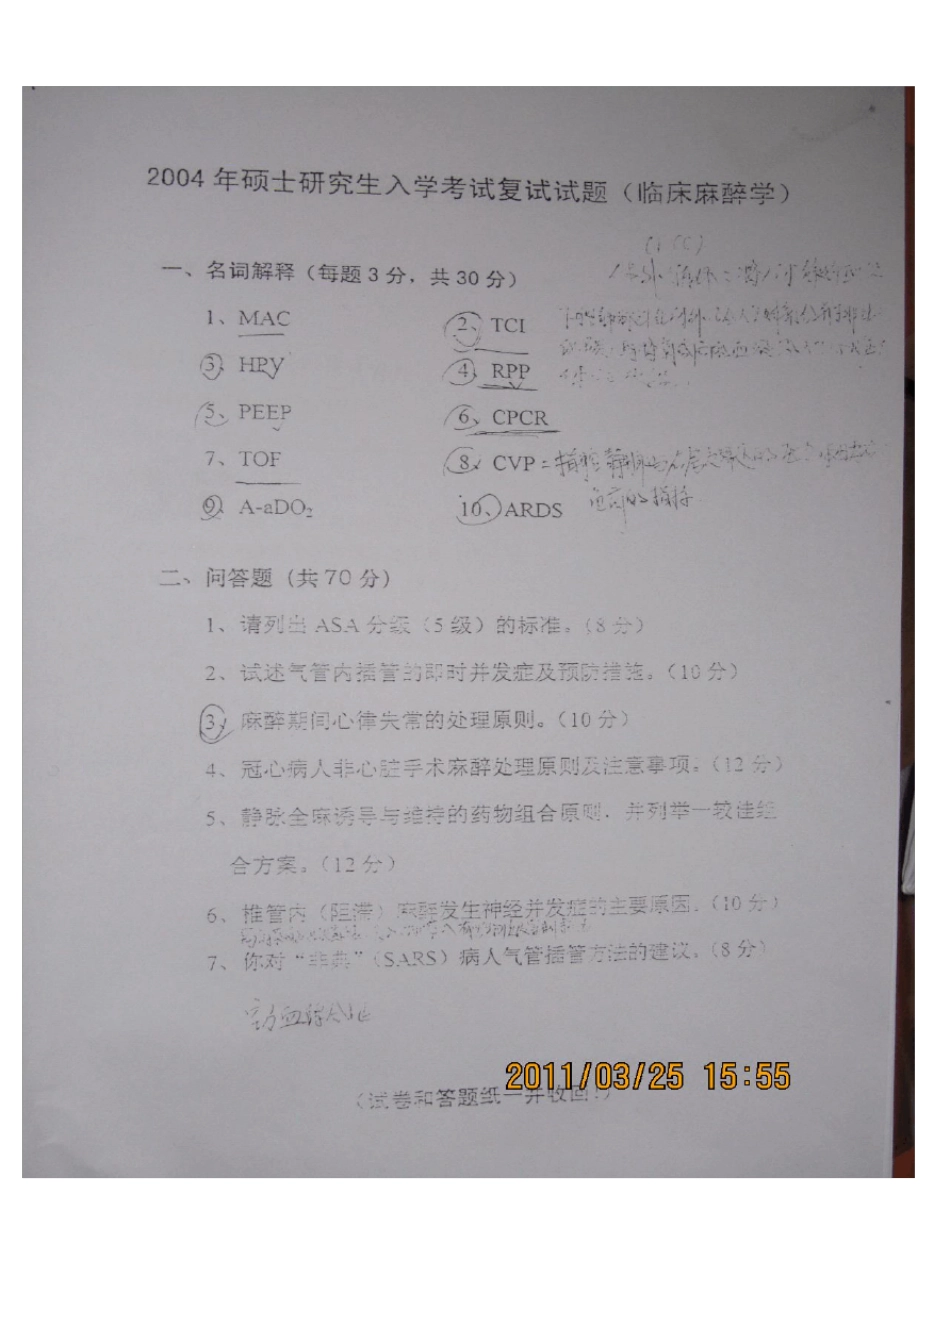 2004 年硕士研究生入学考试复试试题（临床麻醉学）
一、名词解释（每题 3 分，共 30 分）
1、MAC
2、TCI
3、HPV
4、RPP
5、PEEP
6、CPCR
7、TOF
8、CVP：
9、A-aDO₂
10、ARDS
二、问答题（共 70 分）
1、请列出 ASA 分级（5 级）的标准。（8 分）
2、试述气管内插管的即时并发症及预防措施。（10 分）
3、麻醉期间心律失常的处理原则。（10 分）
4、冠心病人非心脏手术麻醉处理原则及注意事项。（12 分）
5、静脉全麻诱导与维持的药物组合原则，并列举一较佳组
合方案。（12 分）
6、椎管内（阻滞）麻醉发生神经并发症的主要原因。（10 分）
7、你对“非典”（SARS）病人气管插管方法的建议。（8 分）
2011/03/25 15:55
（试卷和答题纸一并收回！）